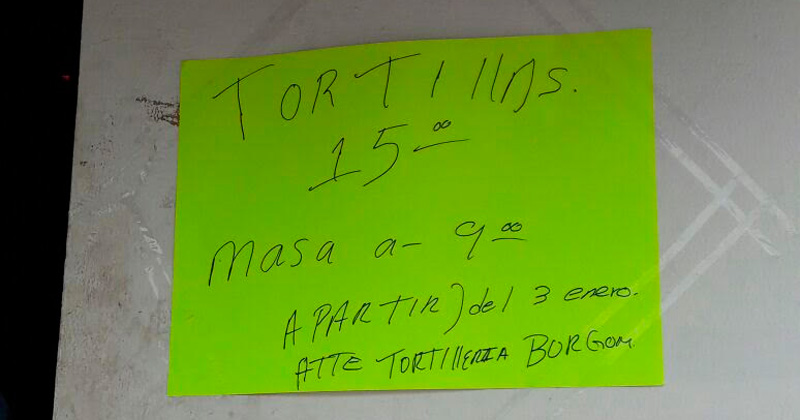 TORTIllAS.
15.00
MASA a- 9.00
A PARTIR) del 3 enero.
ATTE TORTIllERIA BORGOM.